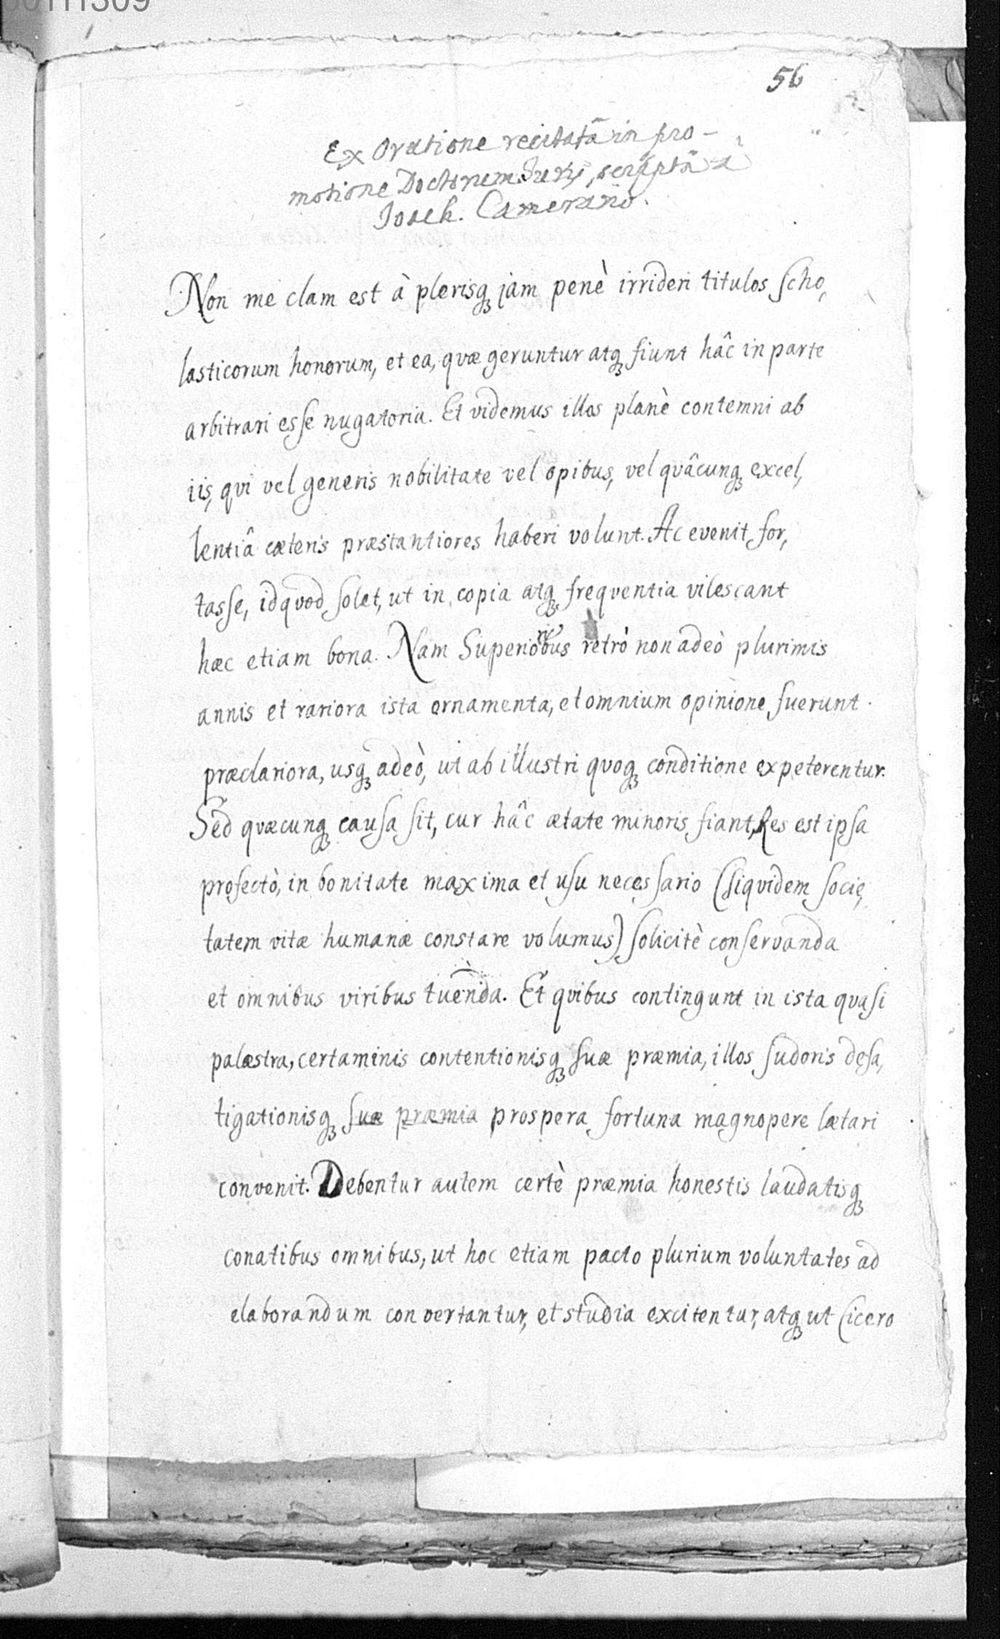 56
Ex Oratione recitatâ in pro-
motione Doctorum Juris, scriptâ à
Joach. Camerario.
Non me clam est à plerisq jam penè irrideri titulos scho,
lasticorum honorum, et ea, quæ geruntur atq fiunt hâc in parte
arbitrari esse nugatoria. Et videmus illos planè contemni ab
iis, qui vel generis nobilitate vel opibus, vel quâcunq excel,
lentiâ cæteris præstantiores haberi volunt. Ac evenit for,
tasse, id quod solet, ut in copia atq frequentia vilescant
hæc etiam bona. Nam Superioribus retrò non adeò plurimis
annis et rariora ista ornamenta, et omnium opinione fuerunt
præclariora, usq adeò, ut ab illustri quoq conditione expeterentur.
Sed quæcunq causa sit, cur hâc ætate minoris fiant, Res est ipsa
profectò, in bonitate maxima et usu necessario (siquidem socie,
tatem vitæ humanæ constare volumus) solicitè conservanda
et omnibus viribus tuenda. Et quibus contingunt in ista quasi
palæstra, certaminis contentionisq suæ præmia, illos sudoris defa,
tigationisq suæ præmia prospera fortuna magnopere lætari
convenit. Debentur autem certè præmia honestis laudatisq
conatibus omnibus, ut hoc etiam pacto plurium voluntates ad
elaborandum convertantur, et studia excitentur, atq ut Cicero